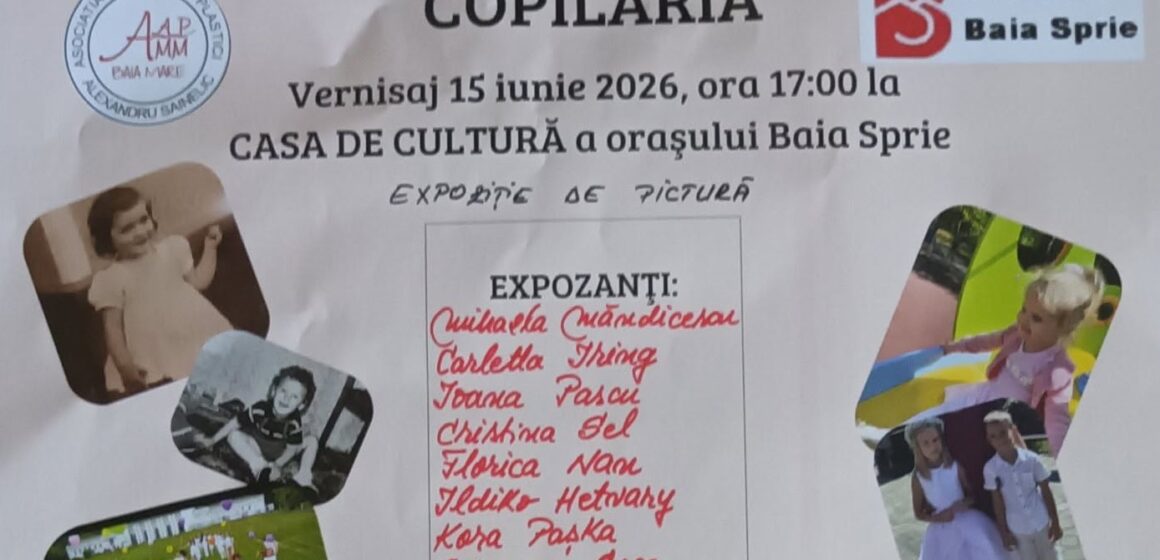 COPILĂRIA
ASOCIAȚIA
PLASTICI
AAPMM
BAIA MARE
ALEXANDRU SAINELIC
Baia Sprie
Vernisaj 15 iunie 2026, ora 17:00 la
CASA DE CULTURĂ a oraşului Baia Sprie
EXPOZIȚIE DE PICTURĂ
EXPOZANŢI:
Mihaela Măndicescu
Carletta Thring
Ioana Pascu
Cristina Gel
Florica Nan
Ildiko Hetvary
Kora Pașka